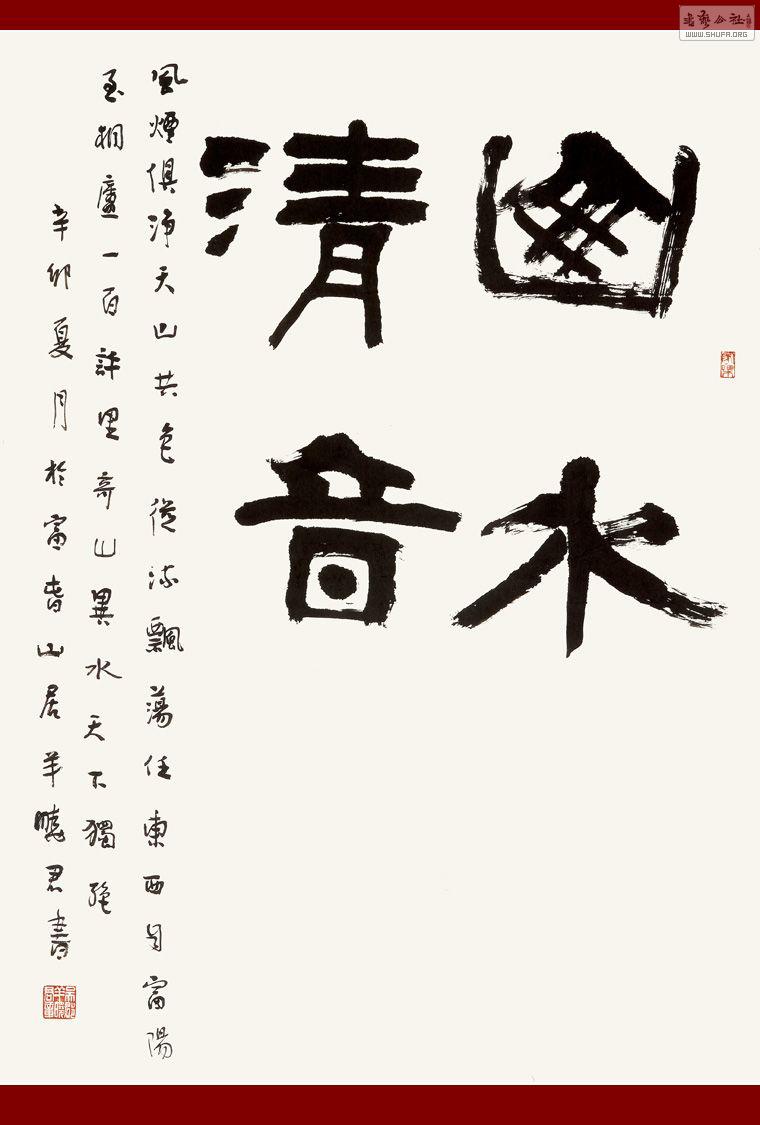 山水
清音
風煙俱淨天山共色從流飄蕩任東西自富陽
至桐廬一百許里奇山異水天下獨絕
辛卯夏月於富春山居羊曉君書
書藝公社
WWW.SHUFA.ORG